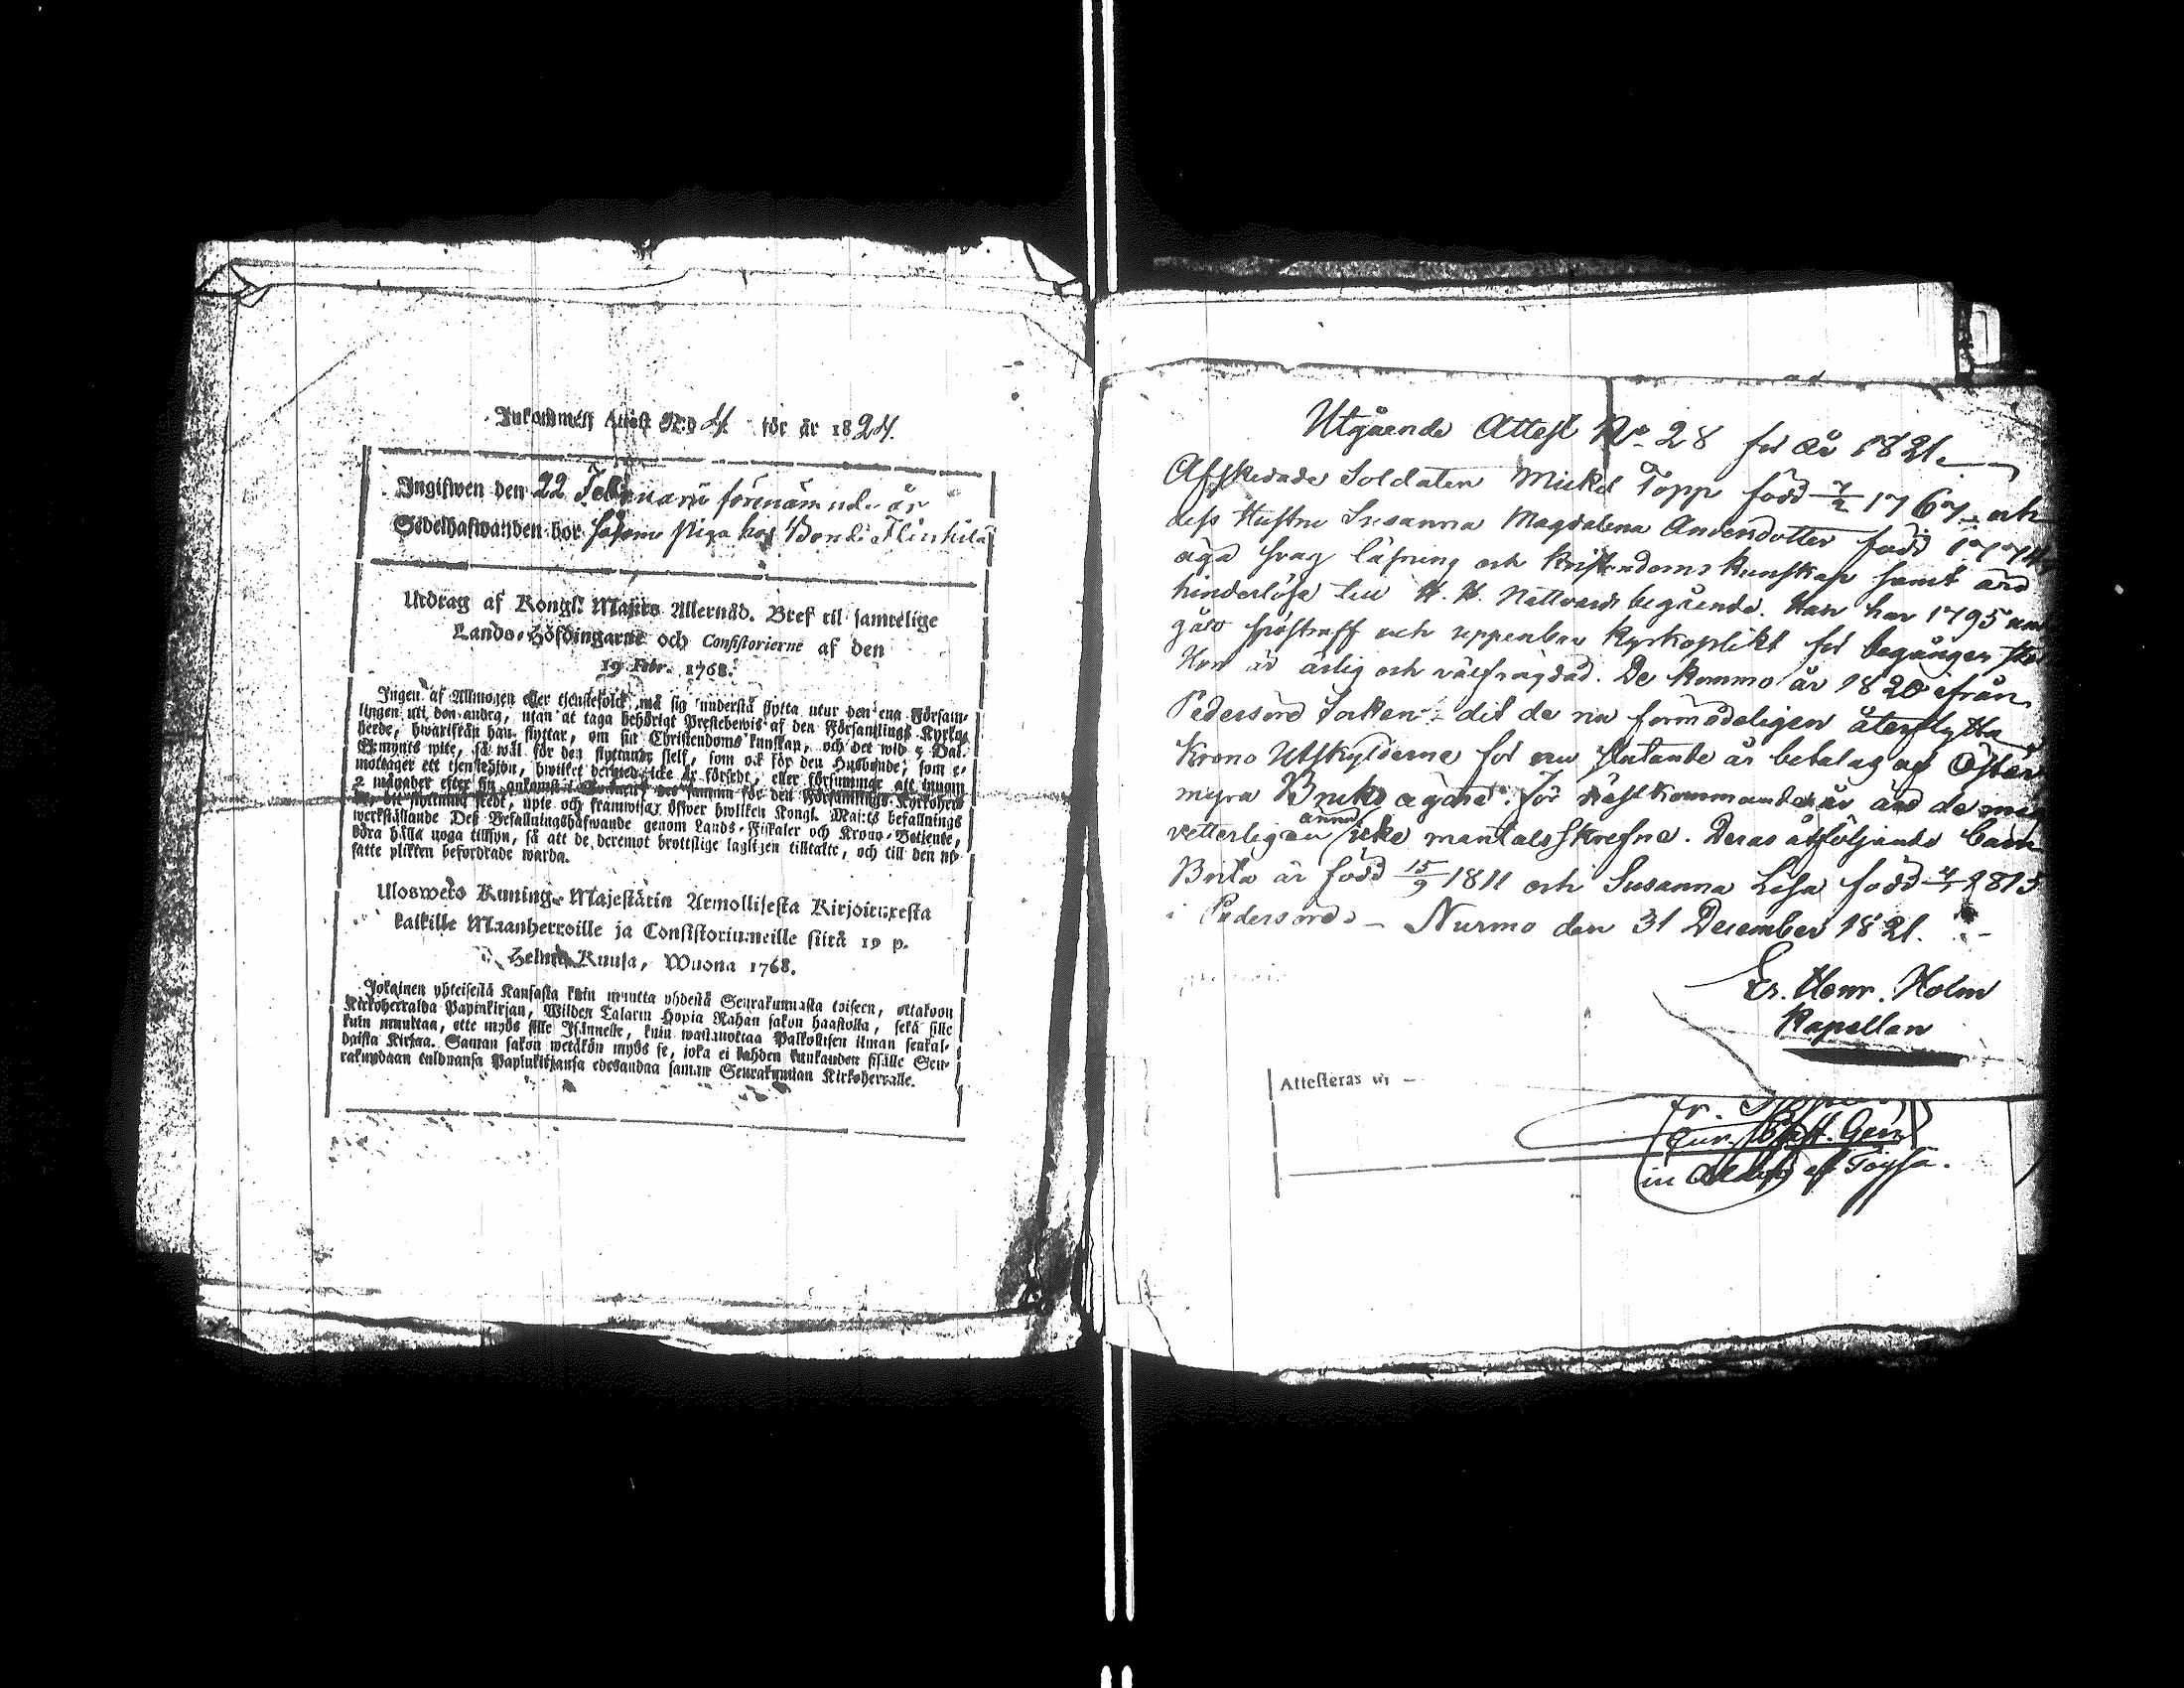 Inkommen Attest N:o 4. för år 1824.
Ingifwen den 22 Februarii förenämnde år
Sedelhafwanden bor såsom piga hos Bonde Flinkilä
Utdrag af Kongl. Maj:ts Allernåd. Bref til samtelige
Lands-Höfdingarne och Consistorierne af den
19 Febr. 1768.
Ingen af Allmogen eller tjenstefolck må sig understå flytta utur den ena Försam-
lingen uti den andra, utan at taga behörigt Prestebewis af den Församlings Kyrko-
herde, hwarifrån han flyttar, om sin Christendoms kunskap, och det wid 5 Dal.
S:mynts wite, så wäl för den flyttande sielf, som ock för den Husbonde, som e-
mottager ett tjenstehjon, hwilket dermed icke är försedt, eller försummar att innom
2 månader efter sin ankomst til Socknen det samma för den Församlings Kyrkoherde
dit flyttning skedt, upte och framwisa; öfwer hwilken Kongl. Maj:ts befallnings
werkställande Dess Befallningshafwande genom Lands-Fiskaler och Krono-Betjente,
böra hålla noga tillsyn, så att de deremot brottslige lagligen tilltalte, och till den ut-
satte plikten befordrade warda.
Uloswetö Kuning. Majestätin Armollisesta Kirjoituxesta
kaikille Maanherroille ja Consistoriumeille siitä 19 p.
Helmi Kuusa, Wuona 1768.
Jokainen yhteisestä Kansasta kuin muutta yhdestä Seurakunnasta toiseen, ottakoon
Kirkoherralda Papinkirjan, Wiiden Talarin Hopia Rahan sakon haastolla, sekä sille
kuin muuttaa, ette myös sille Isännelle, kuin wastanottaa Palkollisen ilman senkal-
daista Kirjaa. Saman sakon wetäkön myös se, joka ei kahden kuukauden sisälle Seu-
rakundaan tulduansa Papinkirjaansa edesandaa saman Seurakunnan Kirkoherralle.
Utgående Attest No 28 för år 1821.
Afskedade Soldaten Mickel Topp född 7/2 1767 och
dess Hustru Susanna Magdalena Andersdotter född
äga svag läsning och Kristendoms kunskap samt äro
hinderlöse till H. H. Nattvards begående. Han har 1795
gått spöstraff och uppenbar Kyrkoplikt för begången
Hon är ärlig och välfrägdad. De kommo år 1820 ifrån
Pedersöre Socken, dit de nu förmodeligen återflytta
Krono Utskylderne för nu slutande år betalag af Öster
myra Bruks ägare. För nästkommande år äro de mig
vetterligen ännu icke mantalsskrefne. Deras åtföljande barn
Brita är född 15/9 1811 och Susanna Lisa född 1815
i Pedersöre. - Nurmo den 31 December 1821.
Er. Henr. Holm
Kapellan
Attesteras
in Alavo et Töysä.